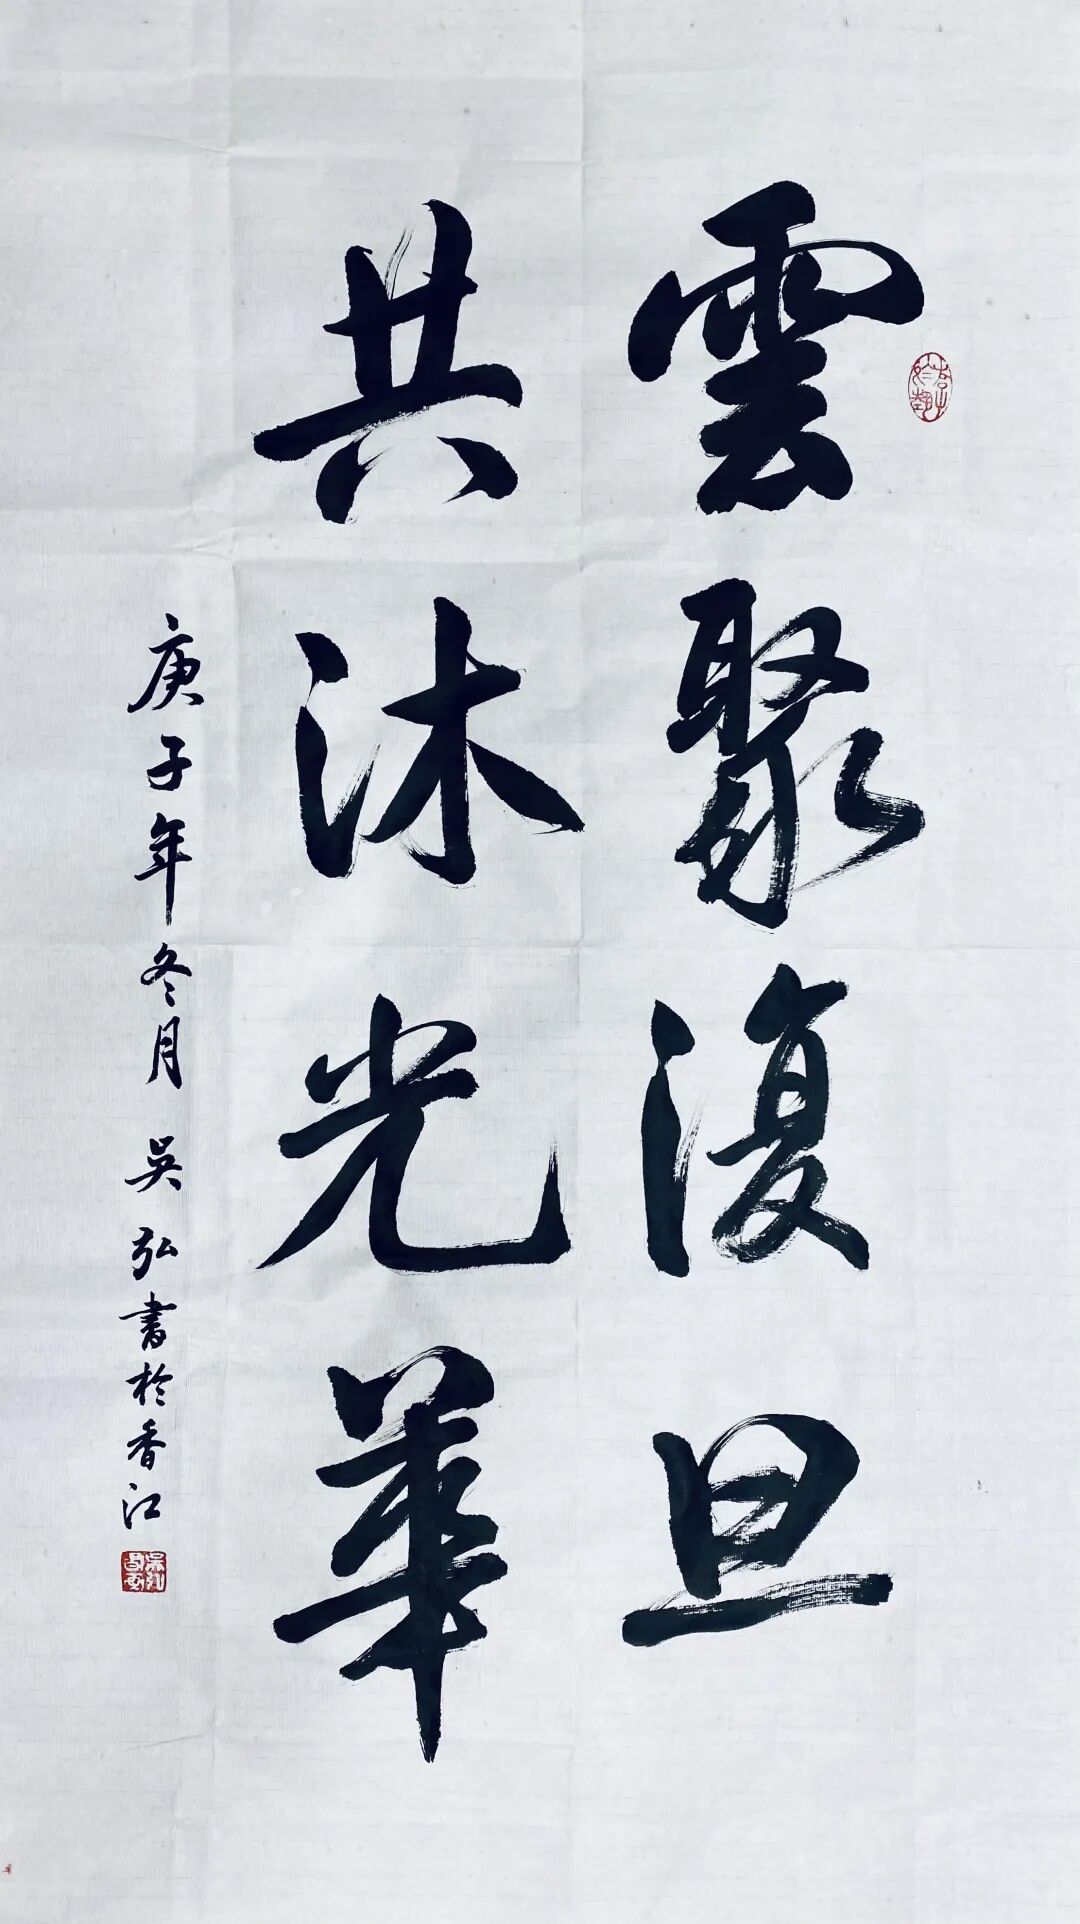 雲聚復旦
共沐光華
庚子年冬月 吳弘書於香江